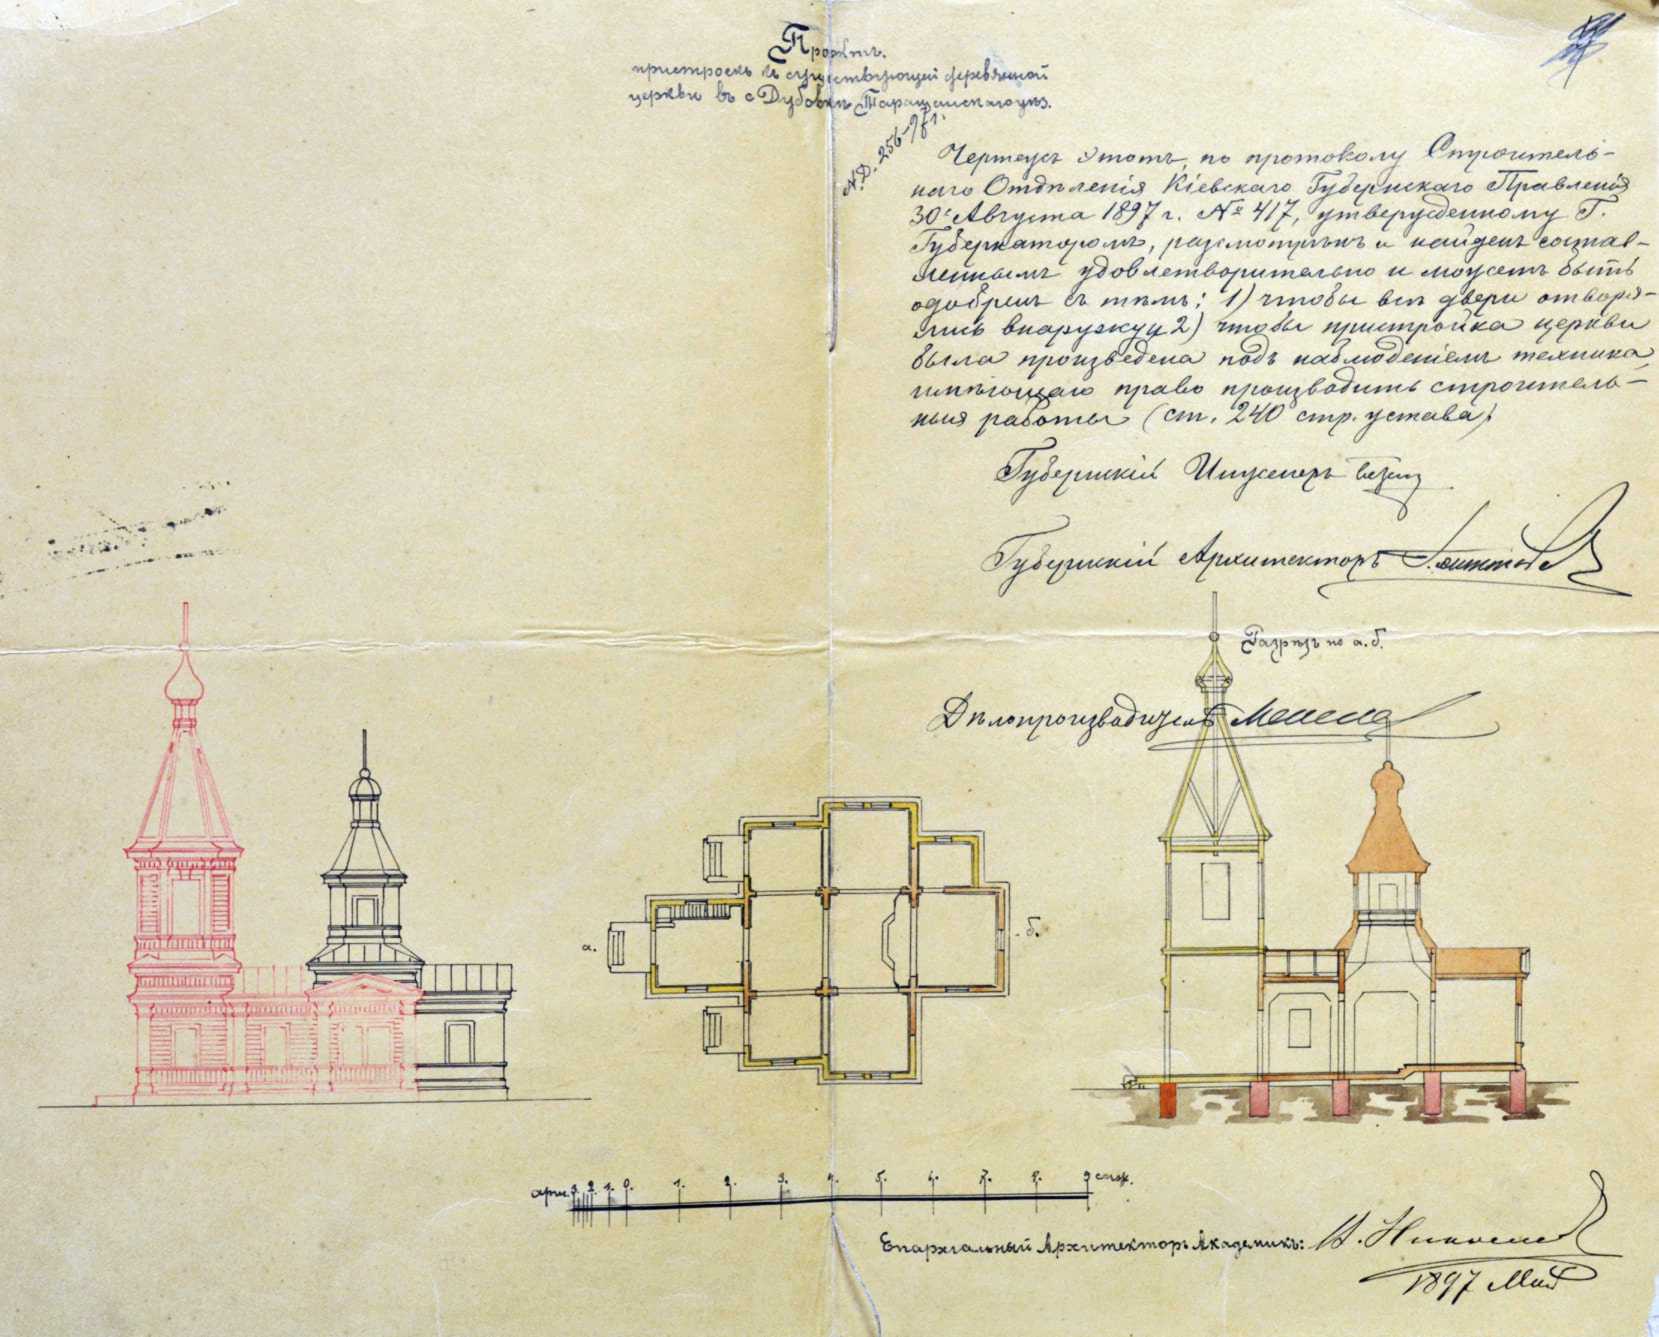 Проэктъ.
пристроекъ къ существующей деревянной
церкви въ с Дубовкѣ Таращанскаго уѣз.
Чертежъ этотъ, по протоколу Строитель-
наго Отдѣленія Кіевскаго Губернскаго Правленія
30ᵍᵒ Августа 1897 г. № 417, утвержденному Г.
Губернаторомъ, разсмотрѣнъ и найденъ состав-
леннымъ удовлетворительно и можетъ быть
одобренъ съ тѣмъ: 1) чтобы всѣ двери отворя-
лись внаружу и 2) чтобы пристройка церкви
была произведена подъ наблюденіемъ техника
имѣющаго право производить строитель-
ныя работы (ст. 240 стр. устава)
Губернскій Инженеръ
Губернскій Архитекторъ
Разрѣзъ по а. б.
Дѣлопроизводитель
а.
б.
арш. 3. 2. 1. 0. 1. 2. 3. 4. 5. 6. 7. 8. 9 саж.
Епархіальный Архитекторъ Академикъ: В. Николаев
1897 Мая